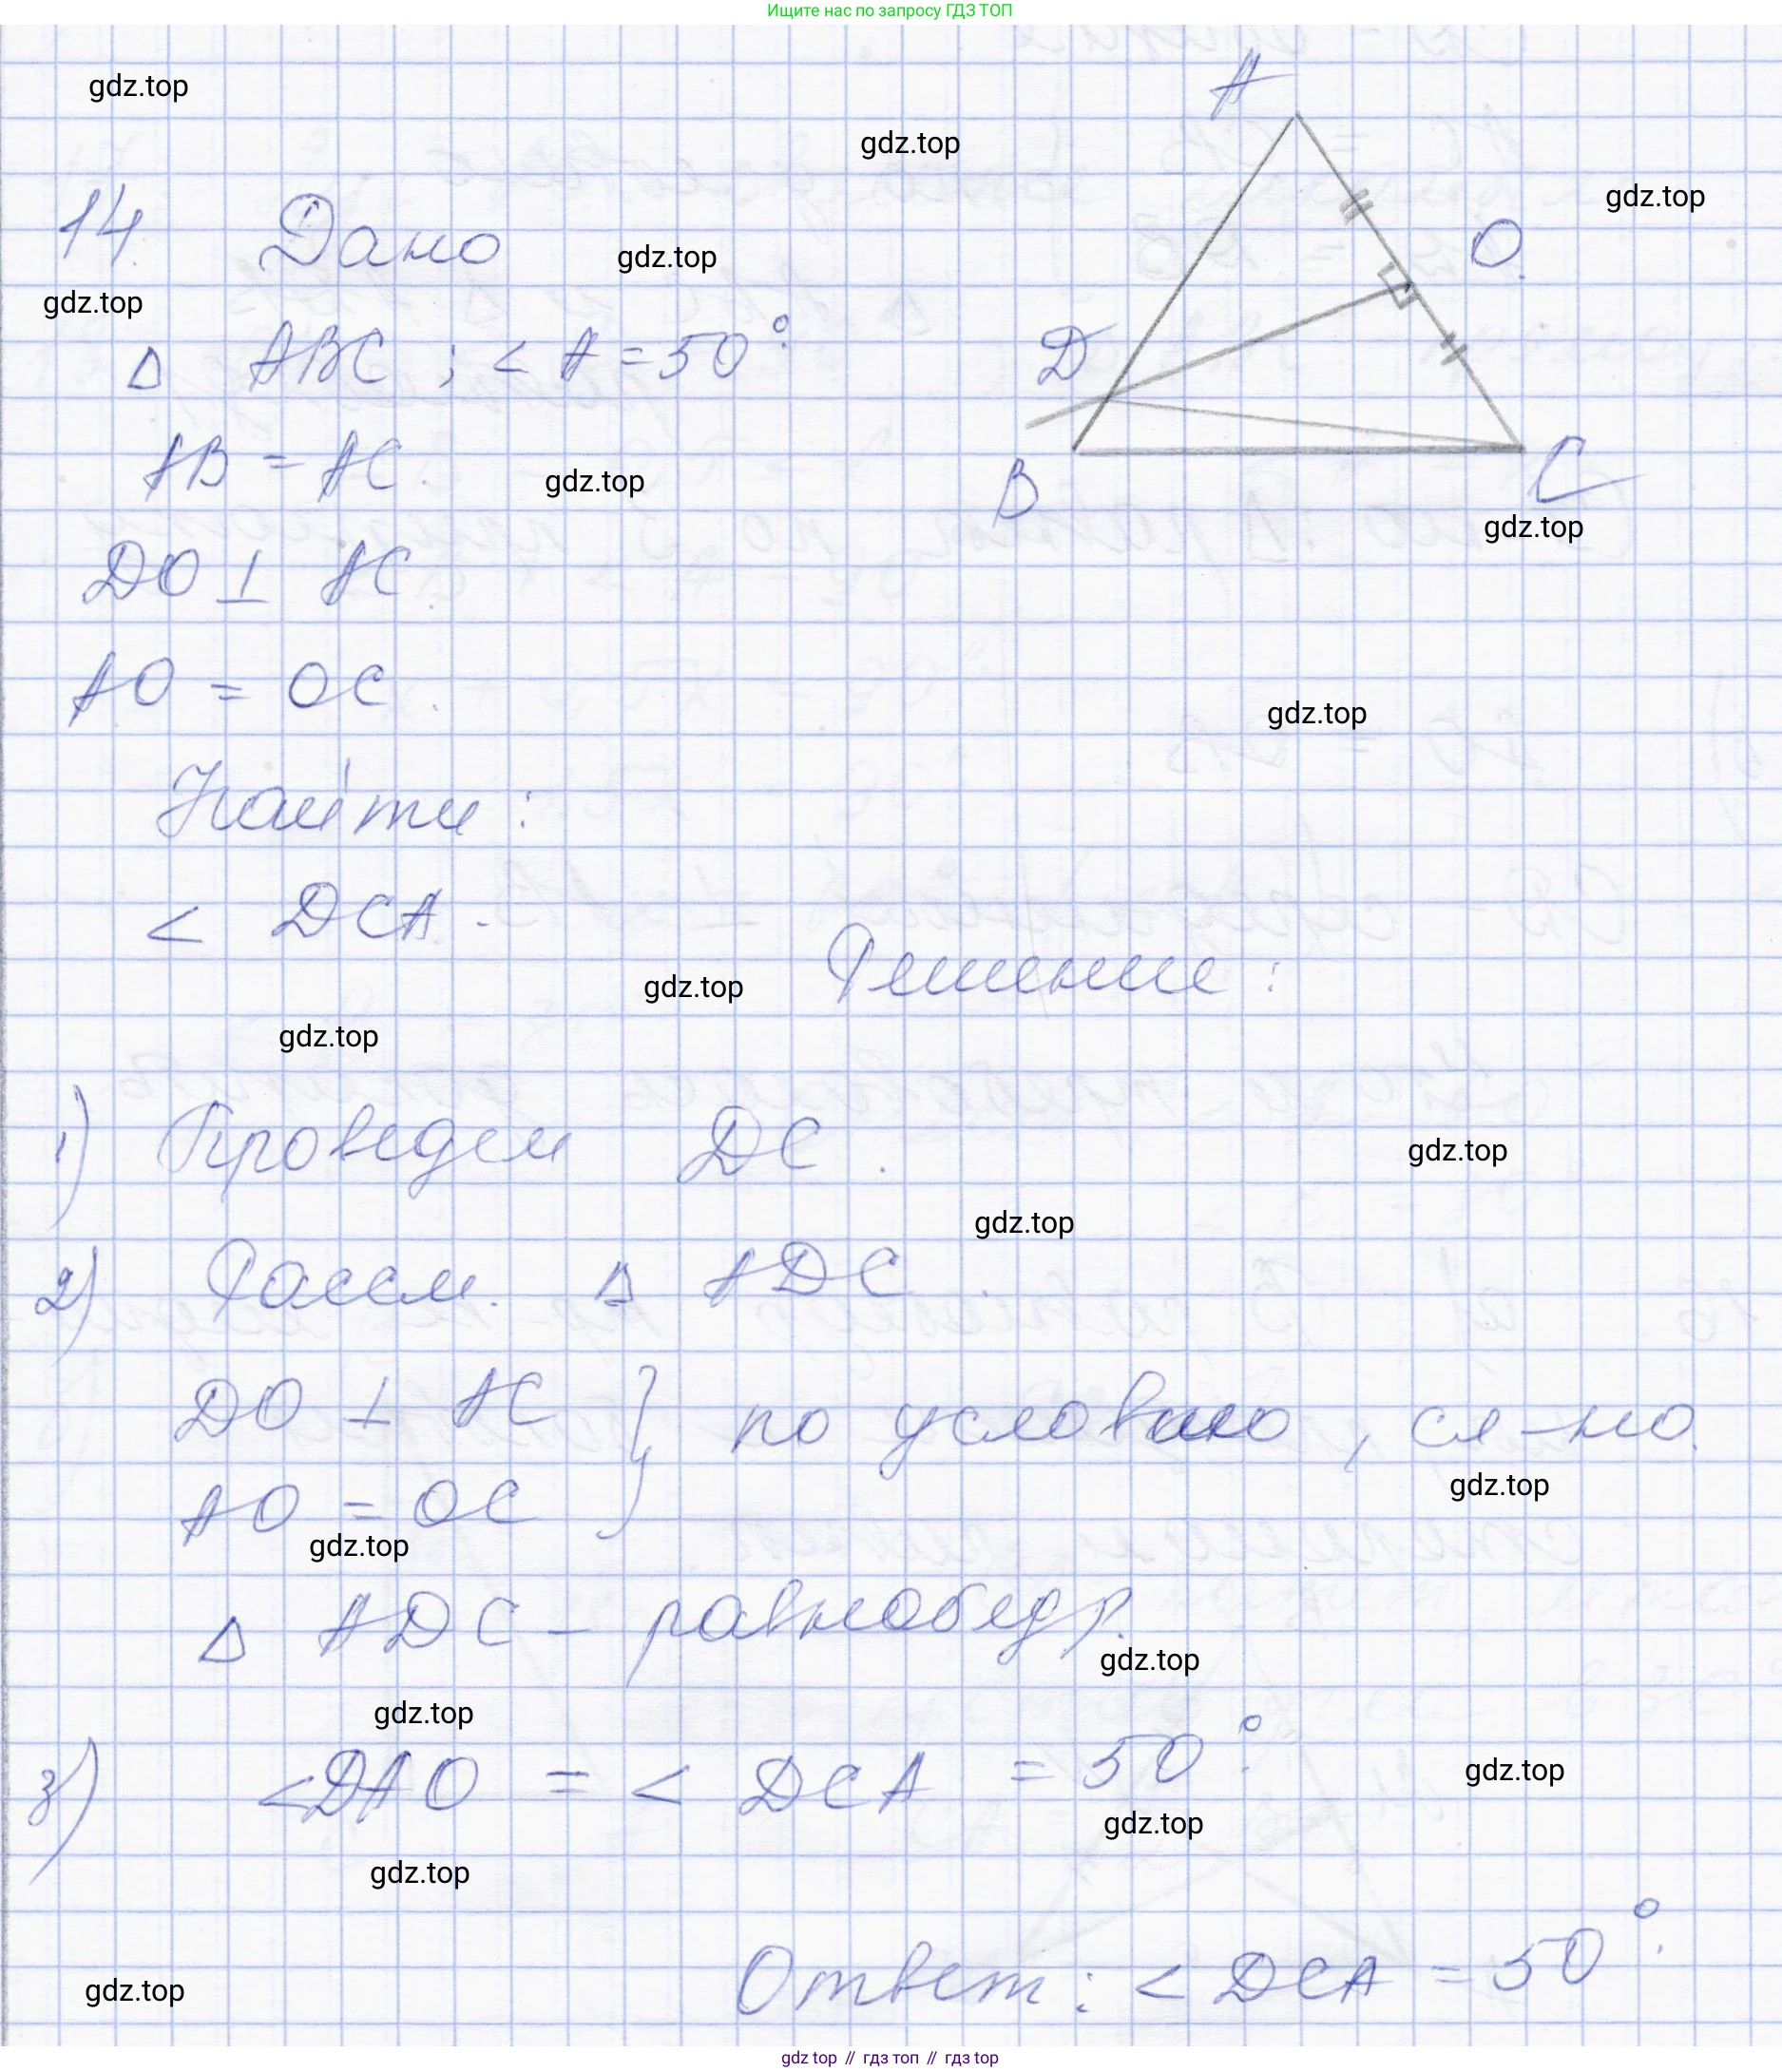 Ищите нас по запросу ГДЗ ТОП
gdz.top
A
gdz.top
gdz.top
14. Дано
O.
gdz.top
gdz.top
Δ ABC ; < A = 50°.
D
AB = AC.
gdz.top
B
C
gdz.top
DO ⊥ AC.
AO = OC.
gdz.top
Найти :
< DCA.
Решение :
gdz.top
gdz.top
1) Проведем DC.
gdz.top
gdz.top
2) Рассм. Δ ADC.
DO ⊥ AC } по условию, сл-но.
gdz.top
AO = OC
gdz.top
Δ ADC - равнобедр.
gdz.top
gdz.top
3) <DAO = < DCA = 50°.
gdz.top
gdz.top
gdz.top
Ответ : < DCA = 50°.
gdz.top
gdz top // гдз топ // гдз top